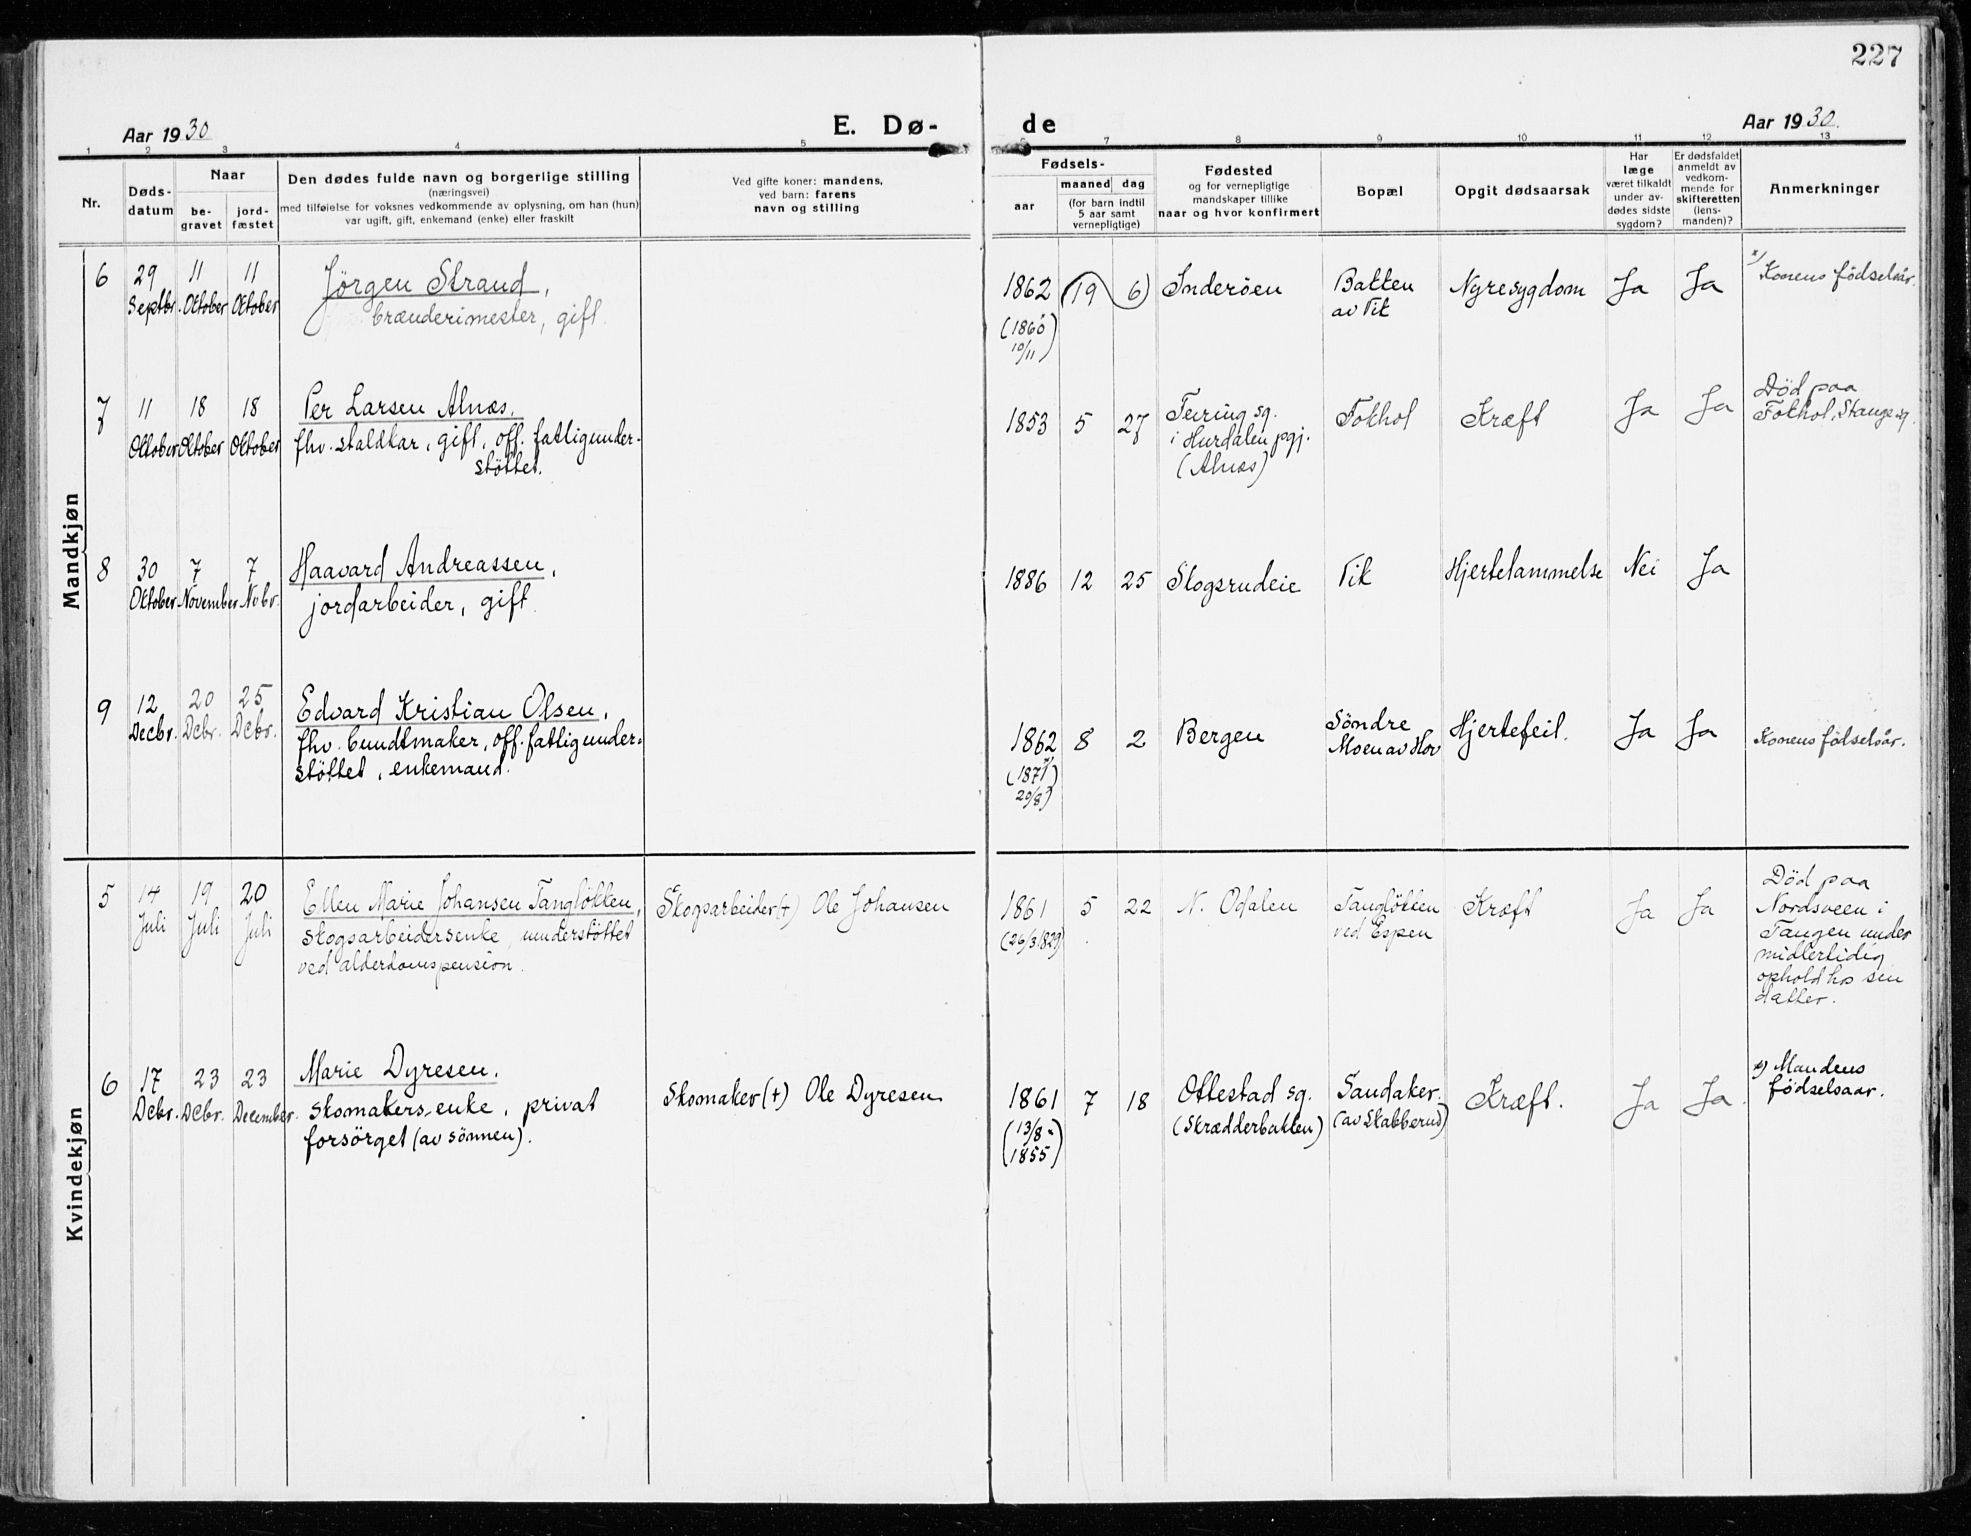 227
Aar 1930
E. Dø-
de
Aar 1930.
1 2 3 4 5 6 7 8 9 10 11 12 13
Nr.
Døds-
datum
Naar
be-
gravet
jord-
fæstet
Den dødes fulde navn og borgerlige stilling
(næringsvei)
med tilføielse for voksnes vedkommende av oplysning, om han (hun)
var ugift, gift, enkemand (enke) eller fraskilt
Ved gifte koner: mandens,
ved barn: farens
navn og stilling
Fødsels-
aar
maaned dag
(for barn indtil
5 aar samt
vernepligtige)
Fødested
og for vernepligtige
mandskaper tillike
naar og hvor konfirmert
Bopæl
Opgit dødsaarsak
Har
læge
været tilkaldt
under av-
dødes sidste
sygdom?
Er dødsfaldet
anmeldt av
vedkom-
mende for
skifteretten
(lens-
manden)?
Anmerkninger
Mandkjøn
6
29
Septbr.
11
Oktober
11
Oktober
Jörgen Strand,
brænderimester, gift.
1862 (19 6)
(1860
10/11)
Inderöen
Bakken
av Vik
Nyresygdom
Ja
Ja
x) Konens födselsår.
7
11
Oktober
18
Oktober
18
Oktober
Per Larsen Alnæs,
fhv. staldkar, gift, off. fattigunder-
støttet.
1853 5 27
Feiring sg.
i Hurdalen pgj.
(Alnæs)
Fokhol
Kræft
Ja
Ja
Död paa
Fokhol, Stange sg.
8
30
Oktober
7
November
7
Novbr.
Haavard Andreassen,
jordarbeider, gift.
1886 12 25
Skogsrudeie
Vik
Hjertelammelse
Nei
Ja
9
12
Decbr.
20
Dcbr.
25
Dcbr.
Edvard Kristian Olsen,
fhv. bundtmaker, off. fattigunder-
støttet, enkemand.
1862 8 2
20/8)
Bergen
Söndre
Moen av Hov
Hjertefeil.
Ja
Ja
Konens födselsår.
Kvindekjøn
5
14
Juli
19
Juli
20
Juli
Ellen Marie Johansen Tangløkken,
skogsarbeidersenke, understøttet
ved alderdomspension.
Skogsarbeider (+) Ole Johansen
1861 5 22
(26/3 1829)
N. Odalen
Tangløkken
ved Espen
Kræft
Ja
Ja
Död paa
Nordsveen i
Tangen under
midlertidig
ophold hos sin
datter.
6
17
Dcbr.
23
Dcbr.
23
December.
Marie Dyresen.
skomakers-enke, privat
forsörget (av sönnen).
Skomaker (+) Ole Dyresen
1861 7 18
(13/8
1855)
Ottestad sg.
(Skrædderbakken)
Sandaker.
(av Skabberud)
Kræft.
Ja
Ja.
x) Mandens
födselsaar.